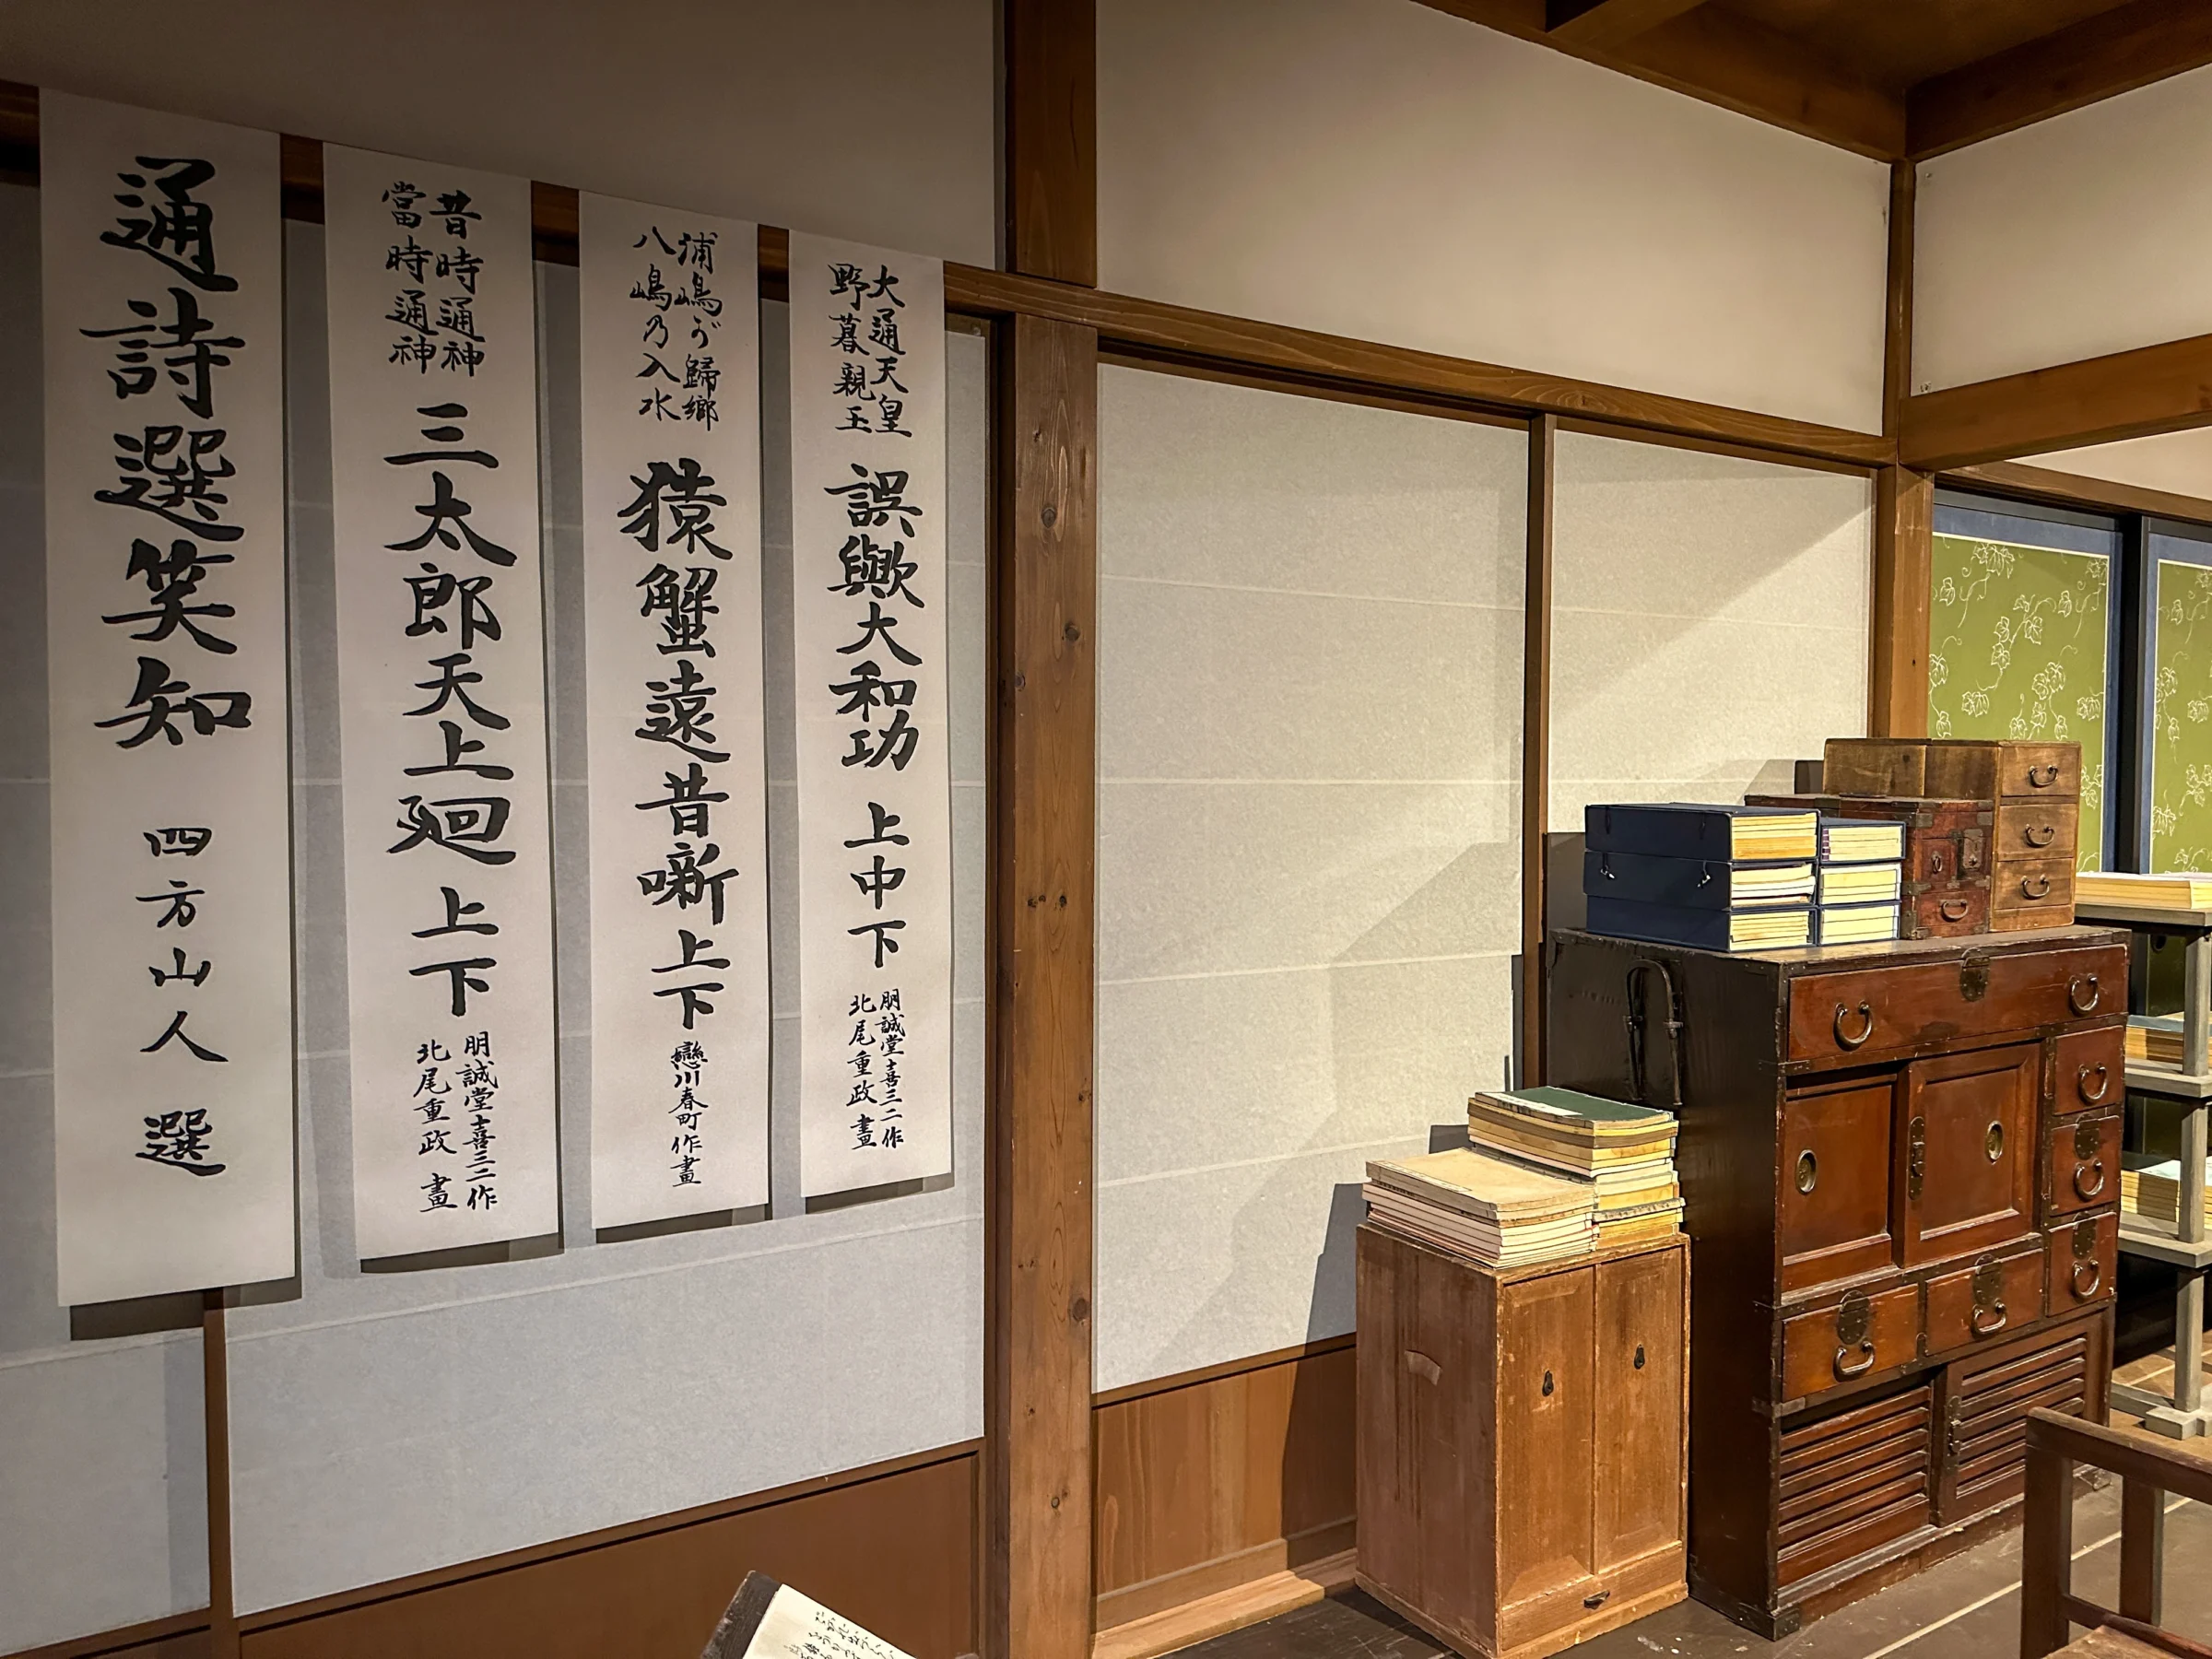 大通天皇
野暮親王
誤歟大和功 上中下
朋誠堂喜三二作
北尾重政 畫
浦嶋が歸鄉
八嶋乃入水
猿蟹遠昔噺 上下
戀川春町作畫
昔時通神
當時通神
三太郎天上廻 上下
朋誠堂喜三二作
北尾重政 畫
通詩選笑知 四方山人 選